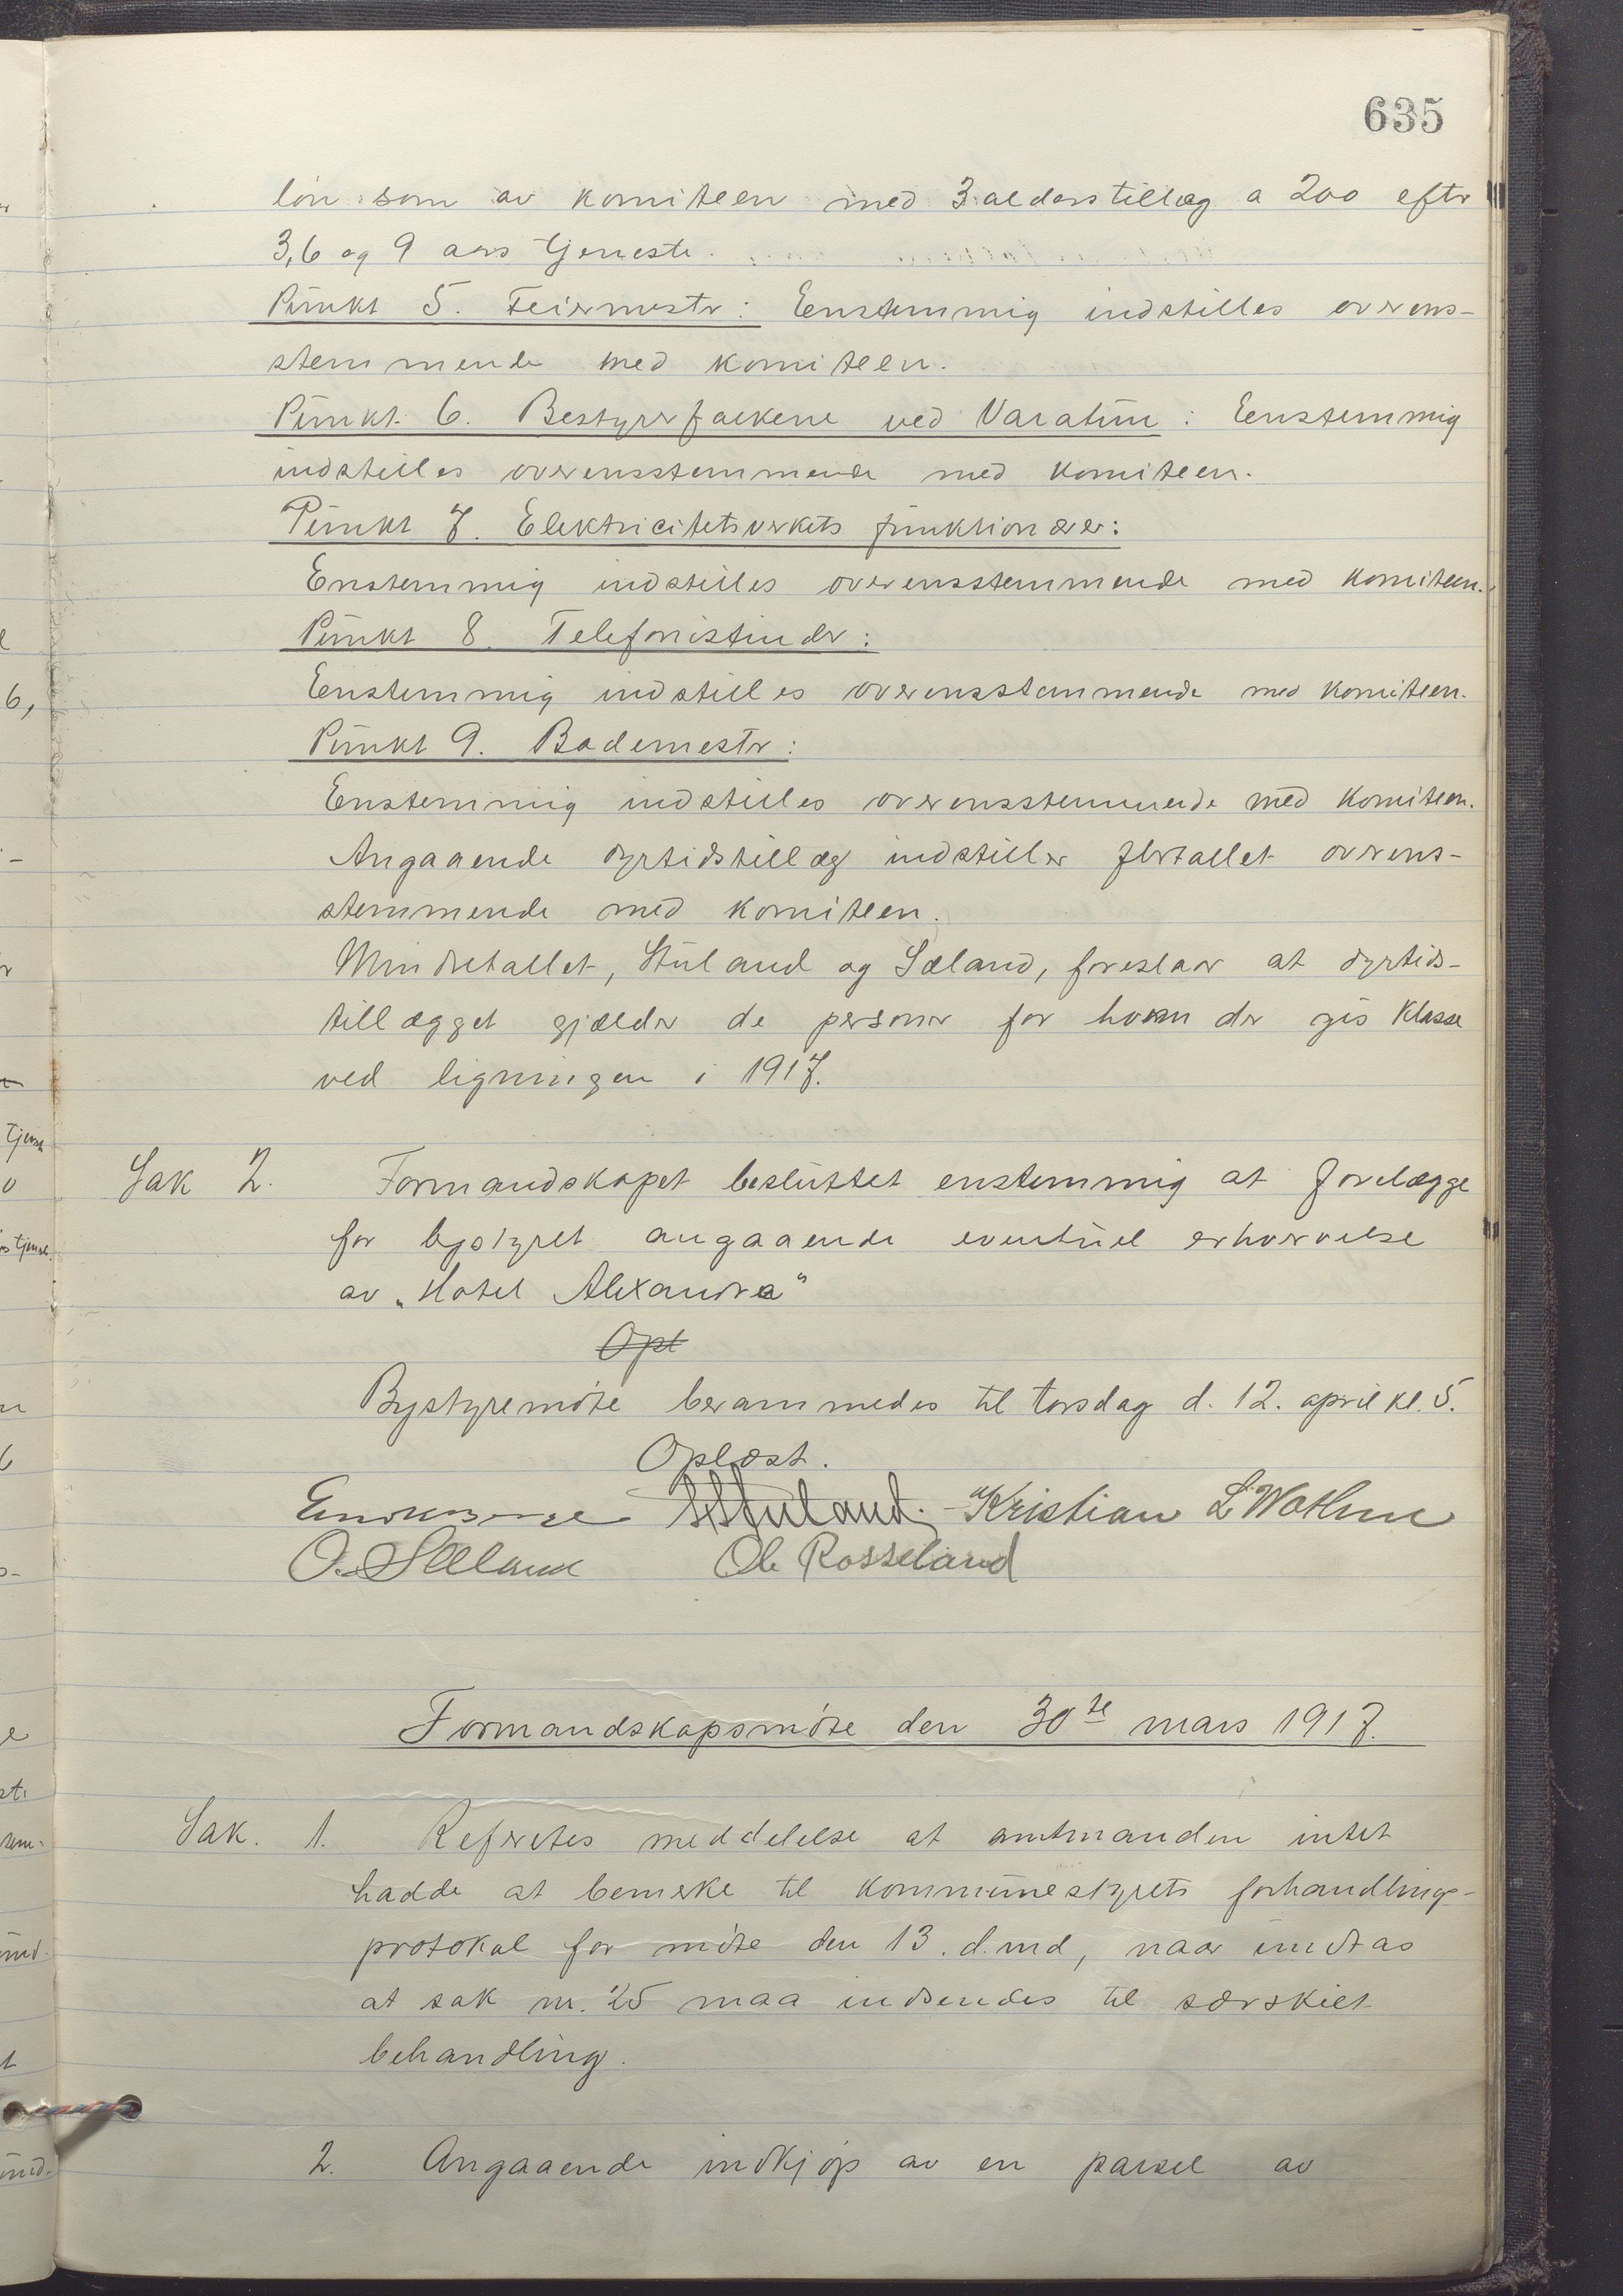 635
løn som av komiteen med 3 alderstillæg a 200 efter
3, 6 og 9 aars tjeneste.
Punkt 5. Feiermester: Eenstemmig indstilles overens-
stemmende med komiteen.
Punkt 6. Bestyrer ved Varatun: Eenstemmig
indstilles overensstemmende med komiteen.
Punkt 7. Elektricitetsverkets funktionærer:
Enstemmig indstilles overensstemmende med komiteen.
Punkt 8. Telefonistinder:
Enstemmig indstilles overensstemmende med komiteen.
Punkt 9. Bademester:
Enstemmig indstilles overensstemmende med komiteen.
Angaaende dyrtidstillæg indstiller flertallet overens-
stemmende med komiteen.
Mindretallet, Stuland og Sæland, foreslaar at dyrtids-
tillægget gjælder de personer for hvem der gis klasse
ved ligningen i 1917.
Sak 2. Formandskapet besluttet enstemmig at forelægge
for bystyret angaaende eventuel erhvervelse
av „Hotel Alexandra"
Opl
Bystyremøte berammedes til torsdag d. 12. april kl. 5.
Oplæst.
Stuland. Kristian L. Wathne
O. Sæland Ole Rosseland
Formandskapsmøte den 30te mars 1917.
Sak. 1. Refertes meddelelse at amtmanden intet
hadde at bemerke til kommunestyrets forhandlings-
protokol for møte den 13. d.md, naar undtas
at sak nr. 25 maa indsendes til særskilt
behandling.
2. Angaaende indkjøp av en parsel av